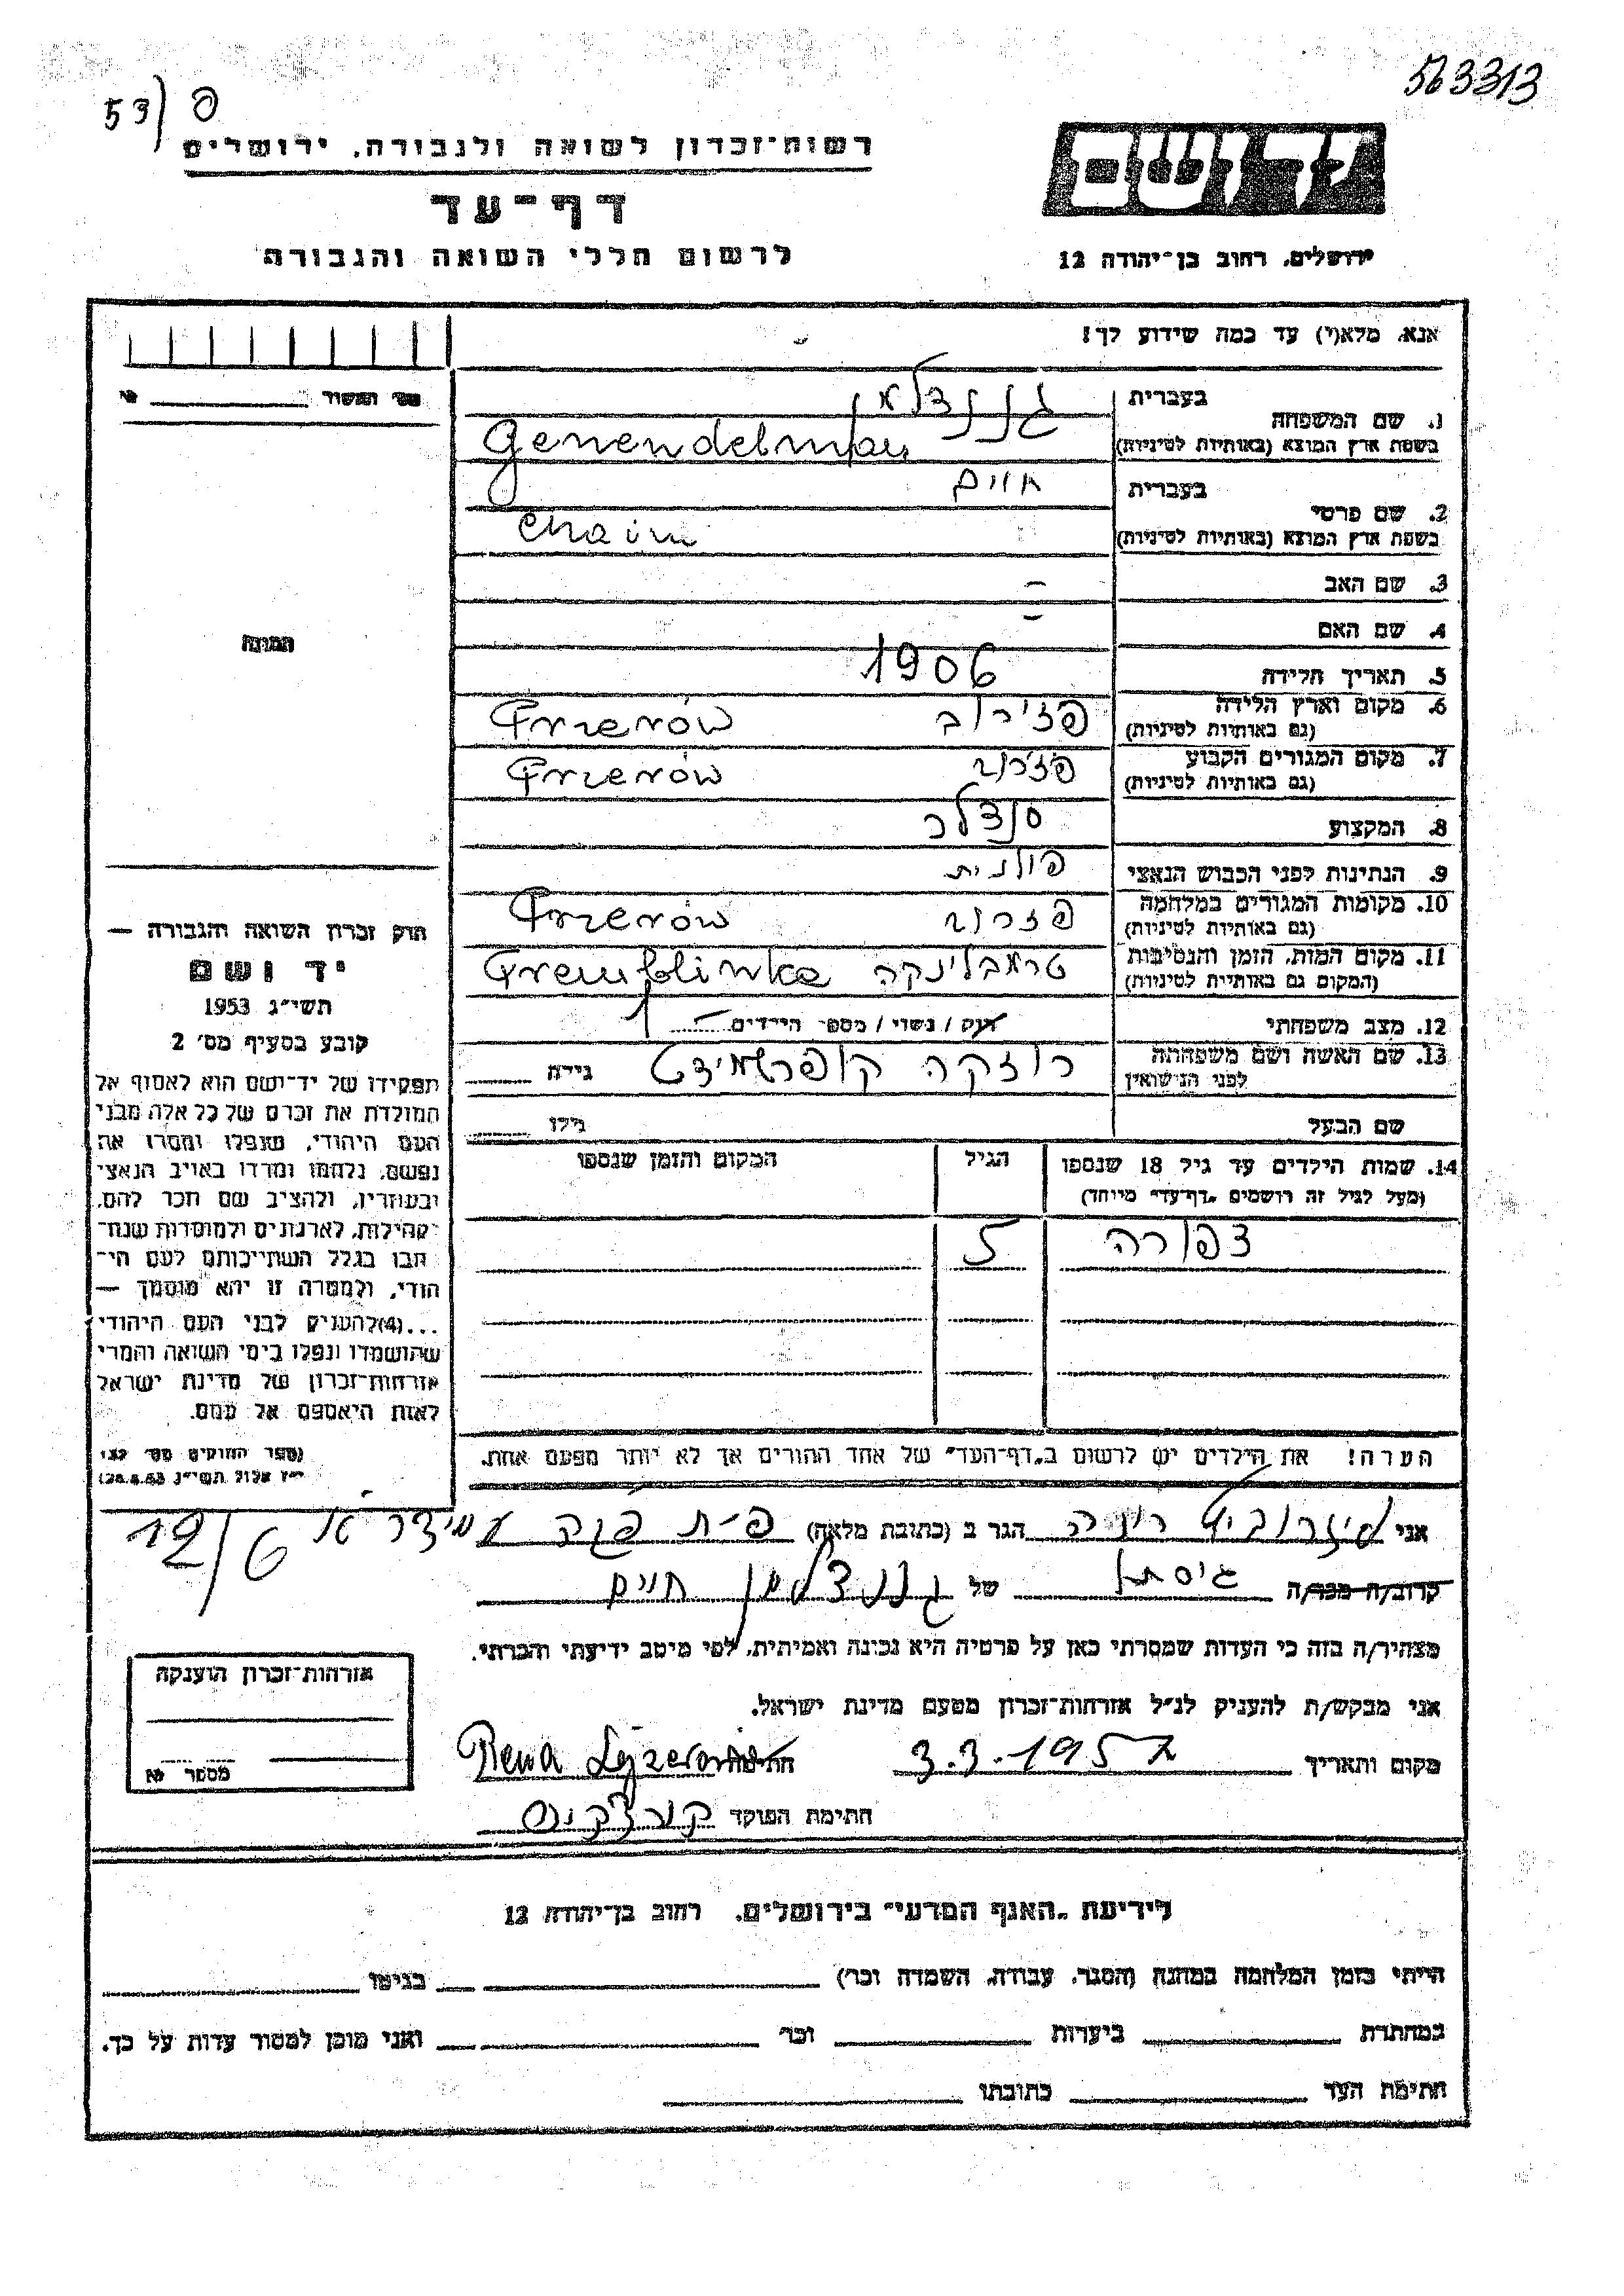 563313
53/פ
יד ושם
רשות־זכרון לשואה ולגבורה, ירושלים
דף־עד
לרשום חללי השואה והגבורה
ירושלים, רחוב בן־יהודה 12
אנא, מלא(י) עד כמה שידוע לך!
1. שם המשפחה בעברית
גננדלמן
בשפת ארץ המוצא (באותיות לטיניות) Genendelman
2. שם פרטי בעברית חיים
בשפת ארץ המוצא (באותיות לטיניות) Chaim
3. שם האב –
4. שם האם –
5. תאריך הלידה 1906
6. מקום וארץ הלידה
(גם באותיות לטיניות)
7. מקום המגורים הקבוע
(גם באותיות לטיניות)
8. המקצוע סנדלר
9. הנתינות לפני הכבוש הנאצי פולנית
10. מקומות המגורים במלחמה
(גם באותיות לטיניות)
11. מקום המות, הזמן והנסיבות טרמבלינקה Tremblinka
(המקום גם באותיות לטיניות)
12. מצב משפחתי רווק / נשוי / מספר הילדים 1
13. שם האשה ושם משפחתה רוזקה קופרשמידט גילה
לפני הנישואין
שם הבעל גילו
14. שמות הילדים עד גיל 18 שנספו הגיל המקום והזמן שנספו
(מעל לגיל זה רושמים "דף־עד" מיוחד)
צפורה 5
הערה! את הילדים יש לרשום ב"דף־העד" של אחד ההורים אך לא יותר מפעם אחת.
מס' התמונה
חוק זכרון השואה והגבורה —
יד ושם
תשי״ג 1953
קובע בסעיף מס׳ 2
תפקידו של יד־ושם הוא לאסוף אל
המולדת את זכרם של כל אלה מבני
העם היהודי, שנפלו ומסרו את
נפשם, נלחמו ומרדו באויב הנאצי
ובעוזריו, ולהציב שם וזכר להם,
לקהילות, לארגונים ולמוסדות שנח־
רבו בגלל השתייכותם לעם הי־
הודי, ולמטרה זו יהא מוסמך —
...(4)להעניק לבני העם היהודי
שהושמדו ונפלו בימי השואה והמרי
אזרחות־זכרון של מדינת ישראל
לאות היאספם אל עמם.
(ספר החוקים מס׳ 132
י״ז אלול תשי״ג 28.8.53)
אני לייזרוביץ רינה הגר ב (כתובת מלאה) פ״ת עמידר 12/6
קרוב/ה מכר/ה גיסתו של גננדלמן חיים
מצהיר/ה בזה כי העדות שמסרתי כאן על פרטיה היא נכונה ואמיתית, לפי מיטב ידיעתי והכרתי.
אני מבקש/ת להעניק לנ״ל אזרחות־זכרון מטעם מדינת ישראל.
מקום ותאריך 3.3.195 חתימה Rena Lejzerowicz
חתימת הפוקד
אזרחות־זכרון הוענקה
מספר
לידיעת "האגף המדעי" בירושלים, רחוב בן־יהודה 12
הייתי בזמן המלחמה במחנה (הסגר, עבודה, השמדה וכו׳) בגיטו
במחתרת ביערות וכו׳ ואני מוכן למסור עדות על כך.
חתימת העד כתובתו